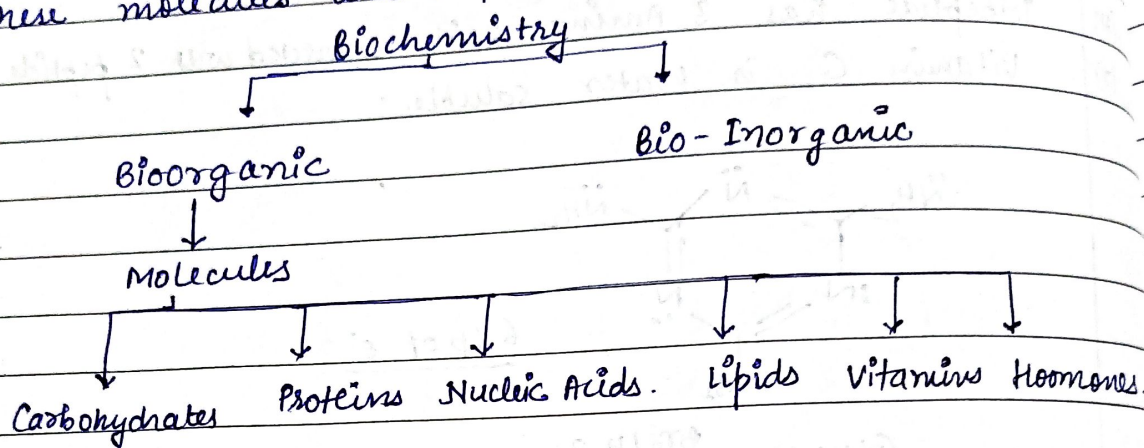 these molecules
Biochemistry
Bioorganic Bio-Inorganic
Molecules
Carbohydrates Proteins Nucleic Acids. Lipids Vitamins Hormones.